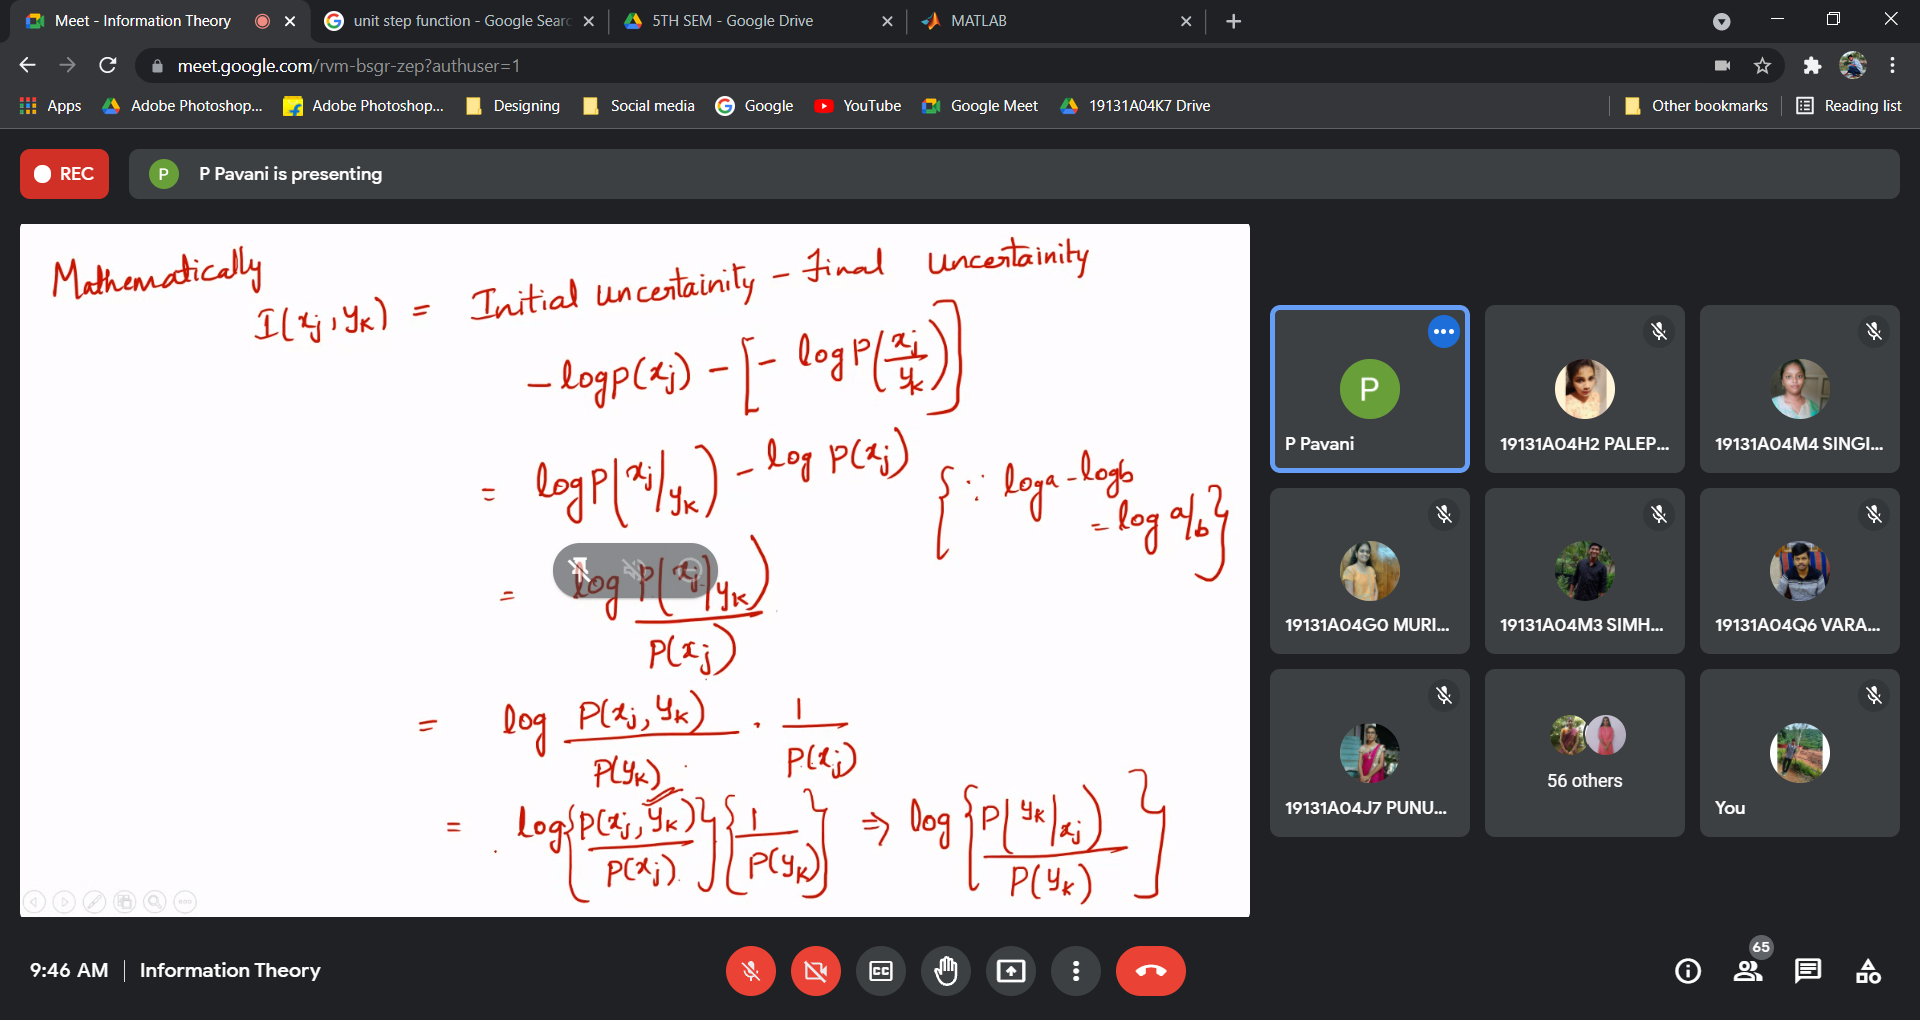 Meet - Information Theory
unit step function - Google Searc
5TH SEM - Google Drive
MATLAB
meet.google.com/rvm-bsgr-zep?authuser=1
Apps Adobe Photoshop... Adobe Photoshop... Designing Social media Google YouTube Google Meet 19131A04K7 Drive Other bookmarks Reading list
REC
P P Pavani is presenting
Mathematically
I(xj, yk) = Initial uncertainity - Final uncertainity
- log p(xj) - [- log P(xj/yk)]
= log P(xj/yk) - log P(xj) {∵ log a - log b
= log a/b}
= log P(xj|yk)
P(xj)
= log P(xj, yk) . 1
P(yk) P(xj)
= log{P(xj, yk)} {1} ⇒ log {P(yk|xj)}
P(xj) P(yk) P(yk)
P
P Pavani
19131A04H2 PALEP...
19131A04M4 SINGI...
19131A04G0 MURI...
19131A04M3 SIMH...
19131A04Q6 VARA...
19131A04J7 PUNU...
56 others
You
9:46 AM | Information Theory
CC
65